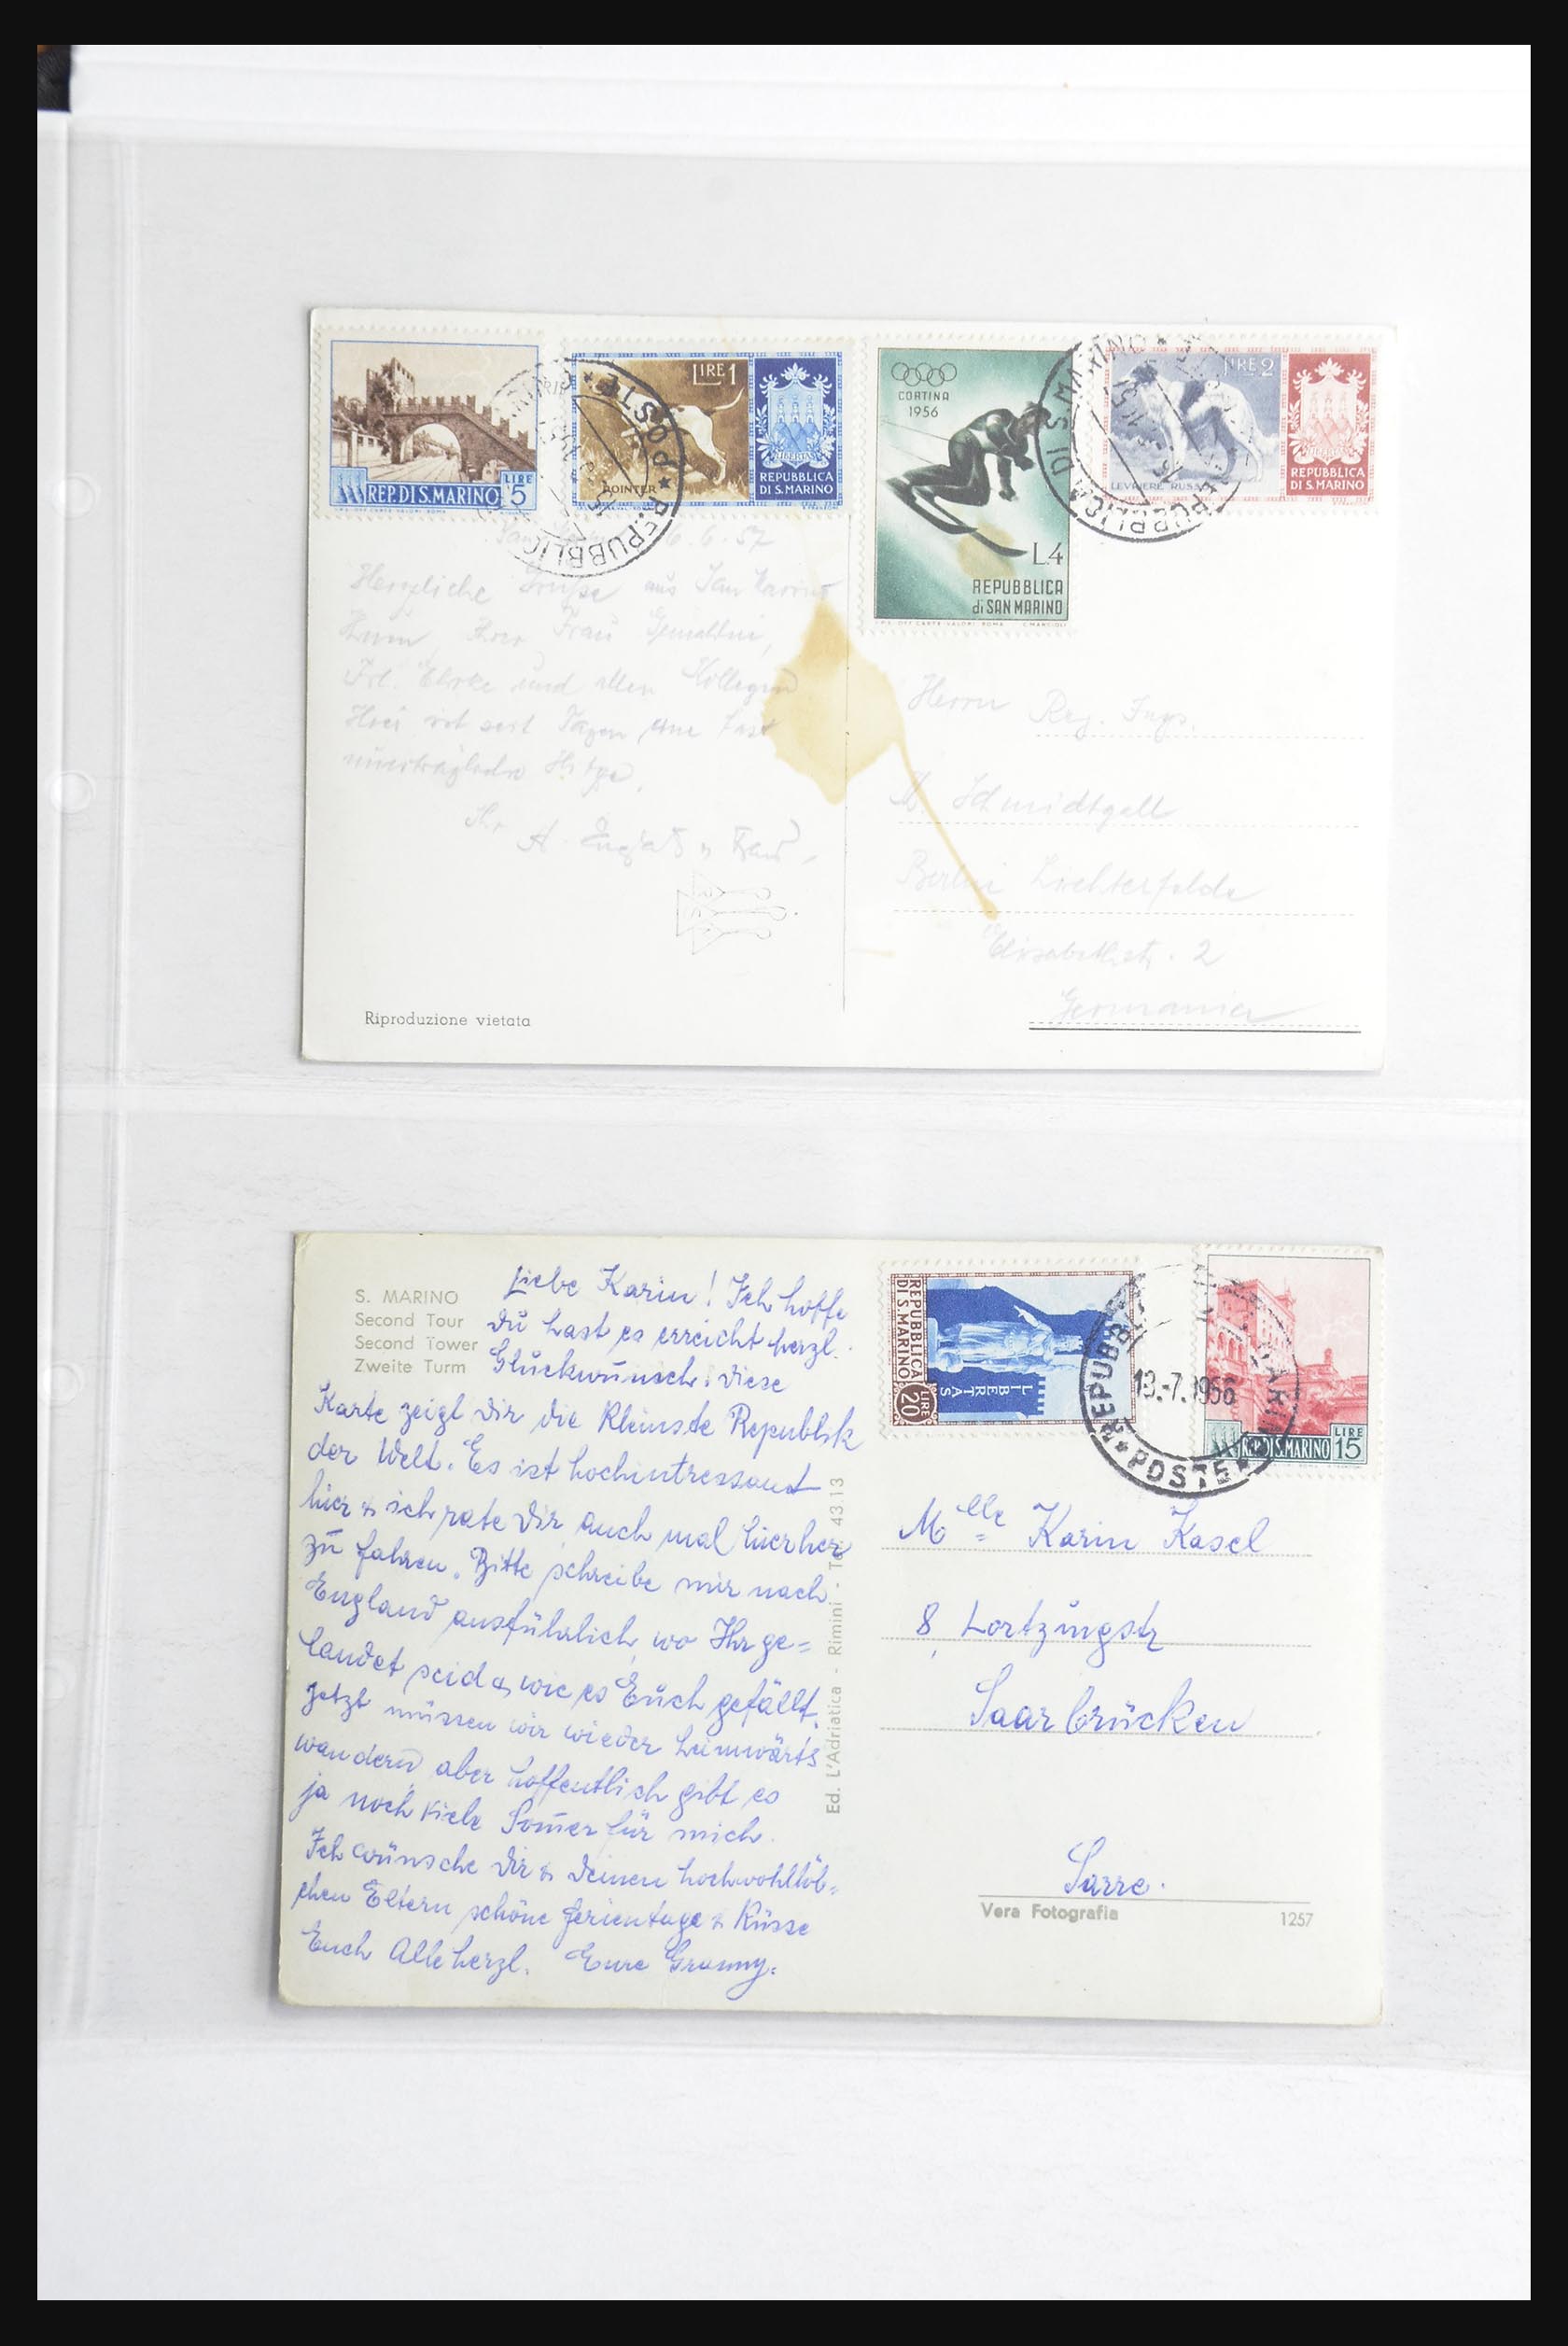 REP. DI S. MARINO LIRE 5
LIRE 1
POINTER
LIBERTAS
REPUBBLICA
DI S. MARINO
CORTINA
1956
L.4
REPUBBLICA
di SAN MARINO
LIRE 2
LEVRIERE RUSSO
LIBERTAS
REPUBBLICA
DI S. MARINO
POSTE ★ REPUBBLIC
REPUBBLICA DI S. MARINO
6.6.57
Herzliche Grüsse aus San Marino
Ihnen, Ihrer Frau Gemahlin,
Frl. und allen Kollegen
Hier ist seit Tagen eine fast
unerträgliche Hitze.
Ihr
A. u Frau
Riproduzione vietata
Herrn Reg. Insp.
Schmidtgall
Berlin Lichterfelde
Elisabethstr. 2
Germania
S. MARINO
Second Tour
Second Tower
Zweite Turm
Liebe Karin! Ich hoffe
Du hast es erreicht herzl.
Glückwünsch. Diese
Karte zeigt Dir die Kleinste Republik
der Welt. Es ist hochintressant
hier & ich rate Dir auch mal hierher
zu fahren. Bitte schreibe mir nach
England ausführlich, wo Ihr ge=
landet seid & wie es Euch gefällt.
Jetzt müssen wir wieder heimwärts
wandern aber hoffentlich gibt es
ja noch viele Som̄er für mich.
Ich wünsche Dir & Deinen hochwohllöb=
chen Eltern schöne Ferientage & Küsse
Euch Alle herzl. Eure Granny.
Ed. L'Adriatica - Rimini - Tel. 43.13
REPUBBLICA
DI S. MARINO
LIRE 20
LIBERTAS
REP. DI S. MARINO LIRE 15
REPUBB
13.-7.1956
★ POSTE ★
Mlle Karin Kasel
8, Lortzingstr
Saarbrücken
Sarre.
Vera Fotografia 1257